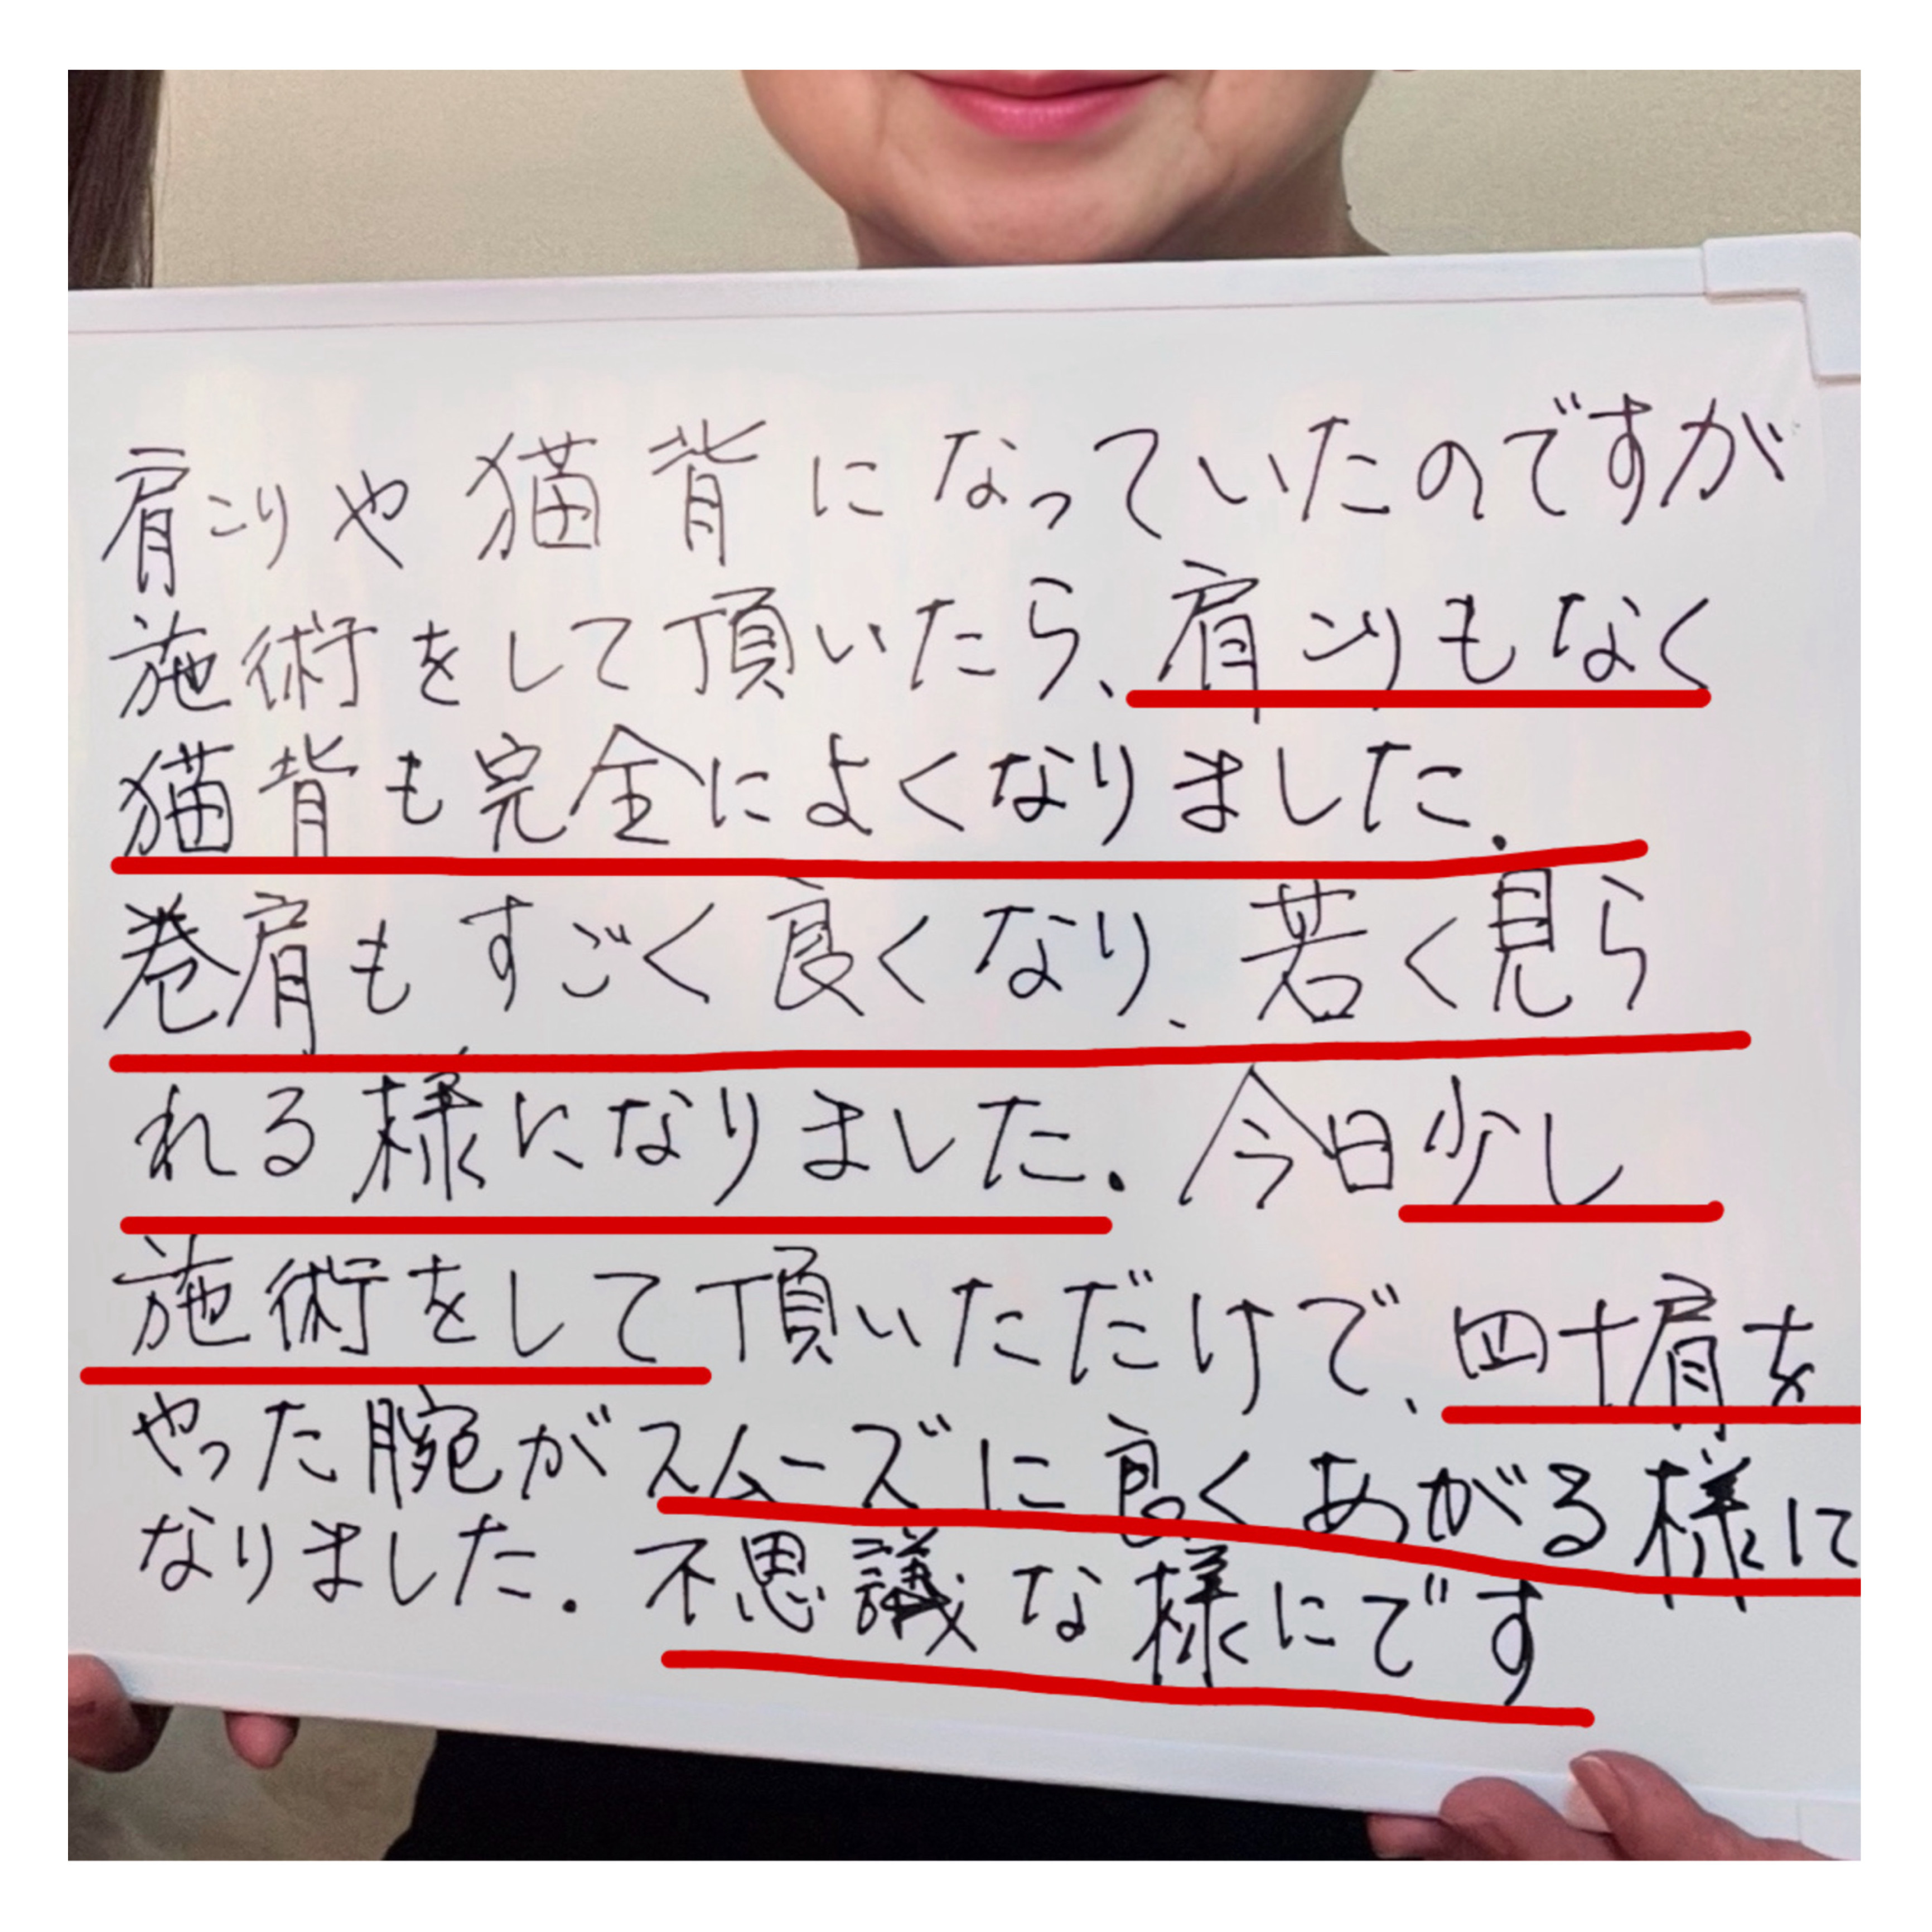 肩こりや猫背になっていたのですが
施術をして頂いたら、肩こりもなく
猫背も完全によくなりました.
巻肩もすごく良くなり、若く見ら
れる様になりました. 今日少し
施術をして頂いただけで、四十肩を
やった腕がスムーズに良くあがる様に
なりました. 不思議な様にです